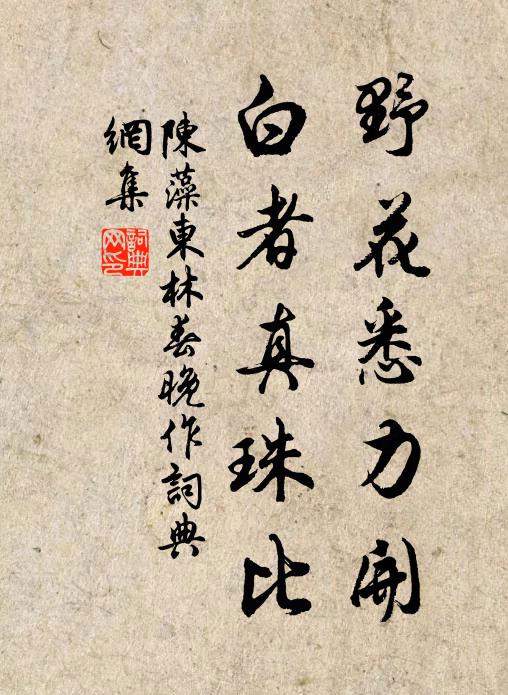 野花悉力開
白者真珠比
陳藻東林春晚作詞典
網集
詞典
网印